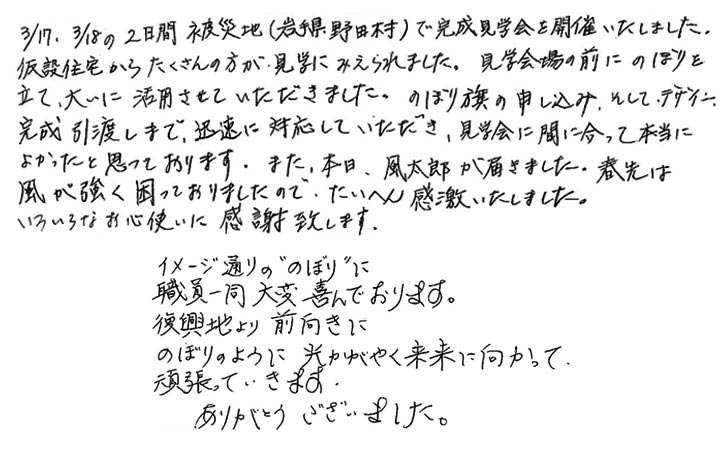 3/17、3/18の2日間 被災地(岩手県野田村)で完成見学会を開催いたしました。
仮設住宅からたくさんの方が見学にみえられました。見学会場の前にのぼりを
立て、大いに活用させていただきました。のぼり旗の申し込み、そして、デザイン、
完成引渡しまで、迅速に対応していただき、見学会に間に合って本当に
よかったと思っております。また、本日、風太郎が届きました。春先は
風が強く困っておりましたので、たいへん感激いたしました。
いろいろなお心使いに感謝致します。
イメージ通りの"のぼり"に
職員一同 大変喜んでおります。
復興地より 前向きに
のぼりのように 光かがやく来来に向かって、
頑張っていきます。
ありがとう ございました。